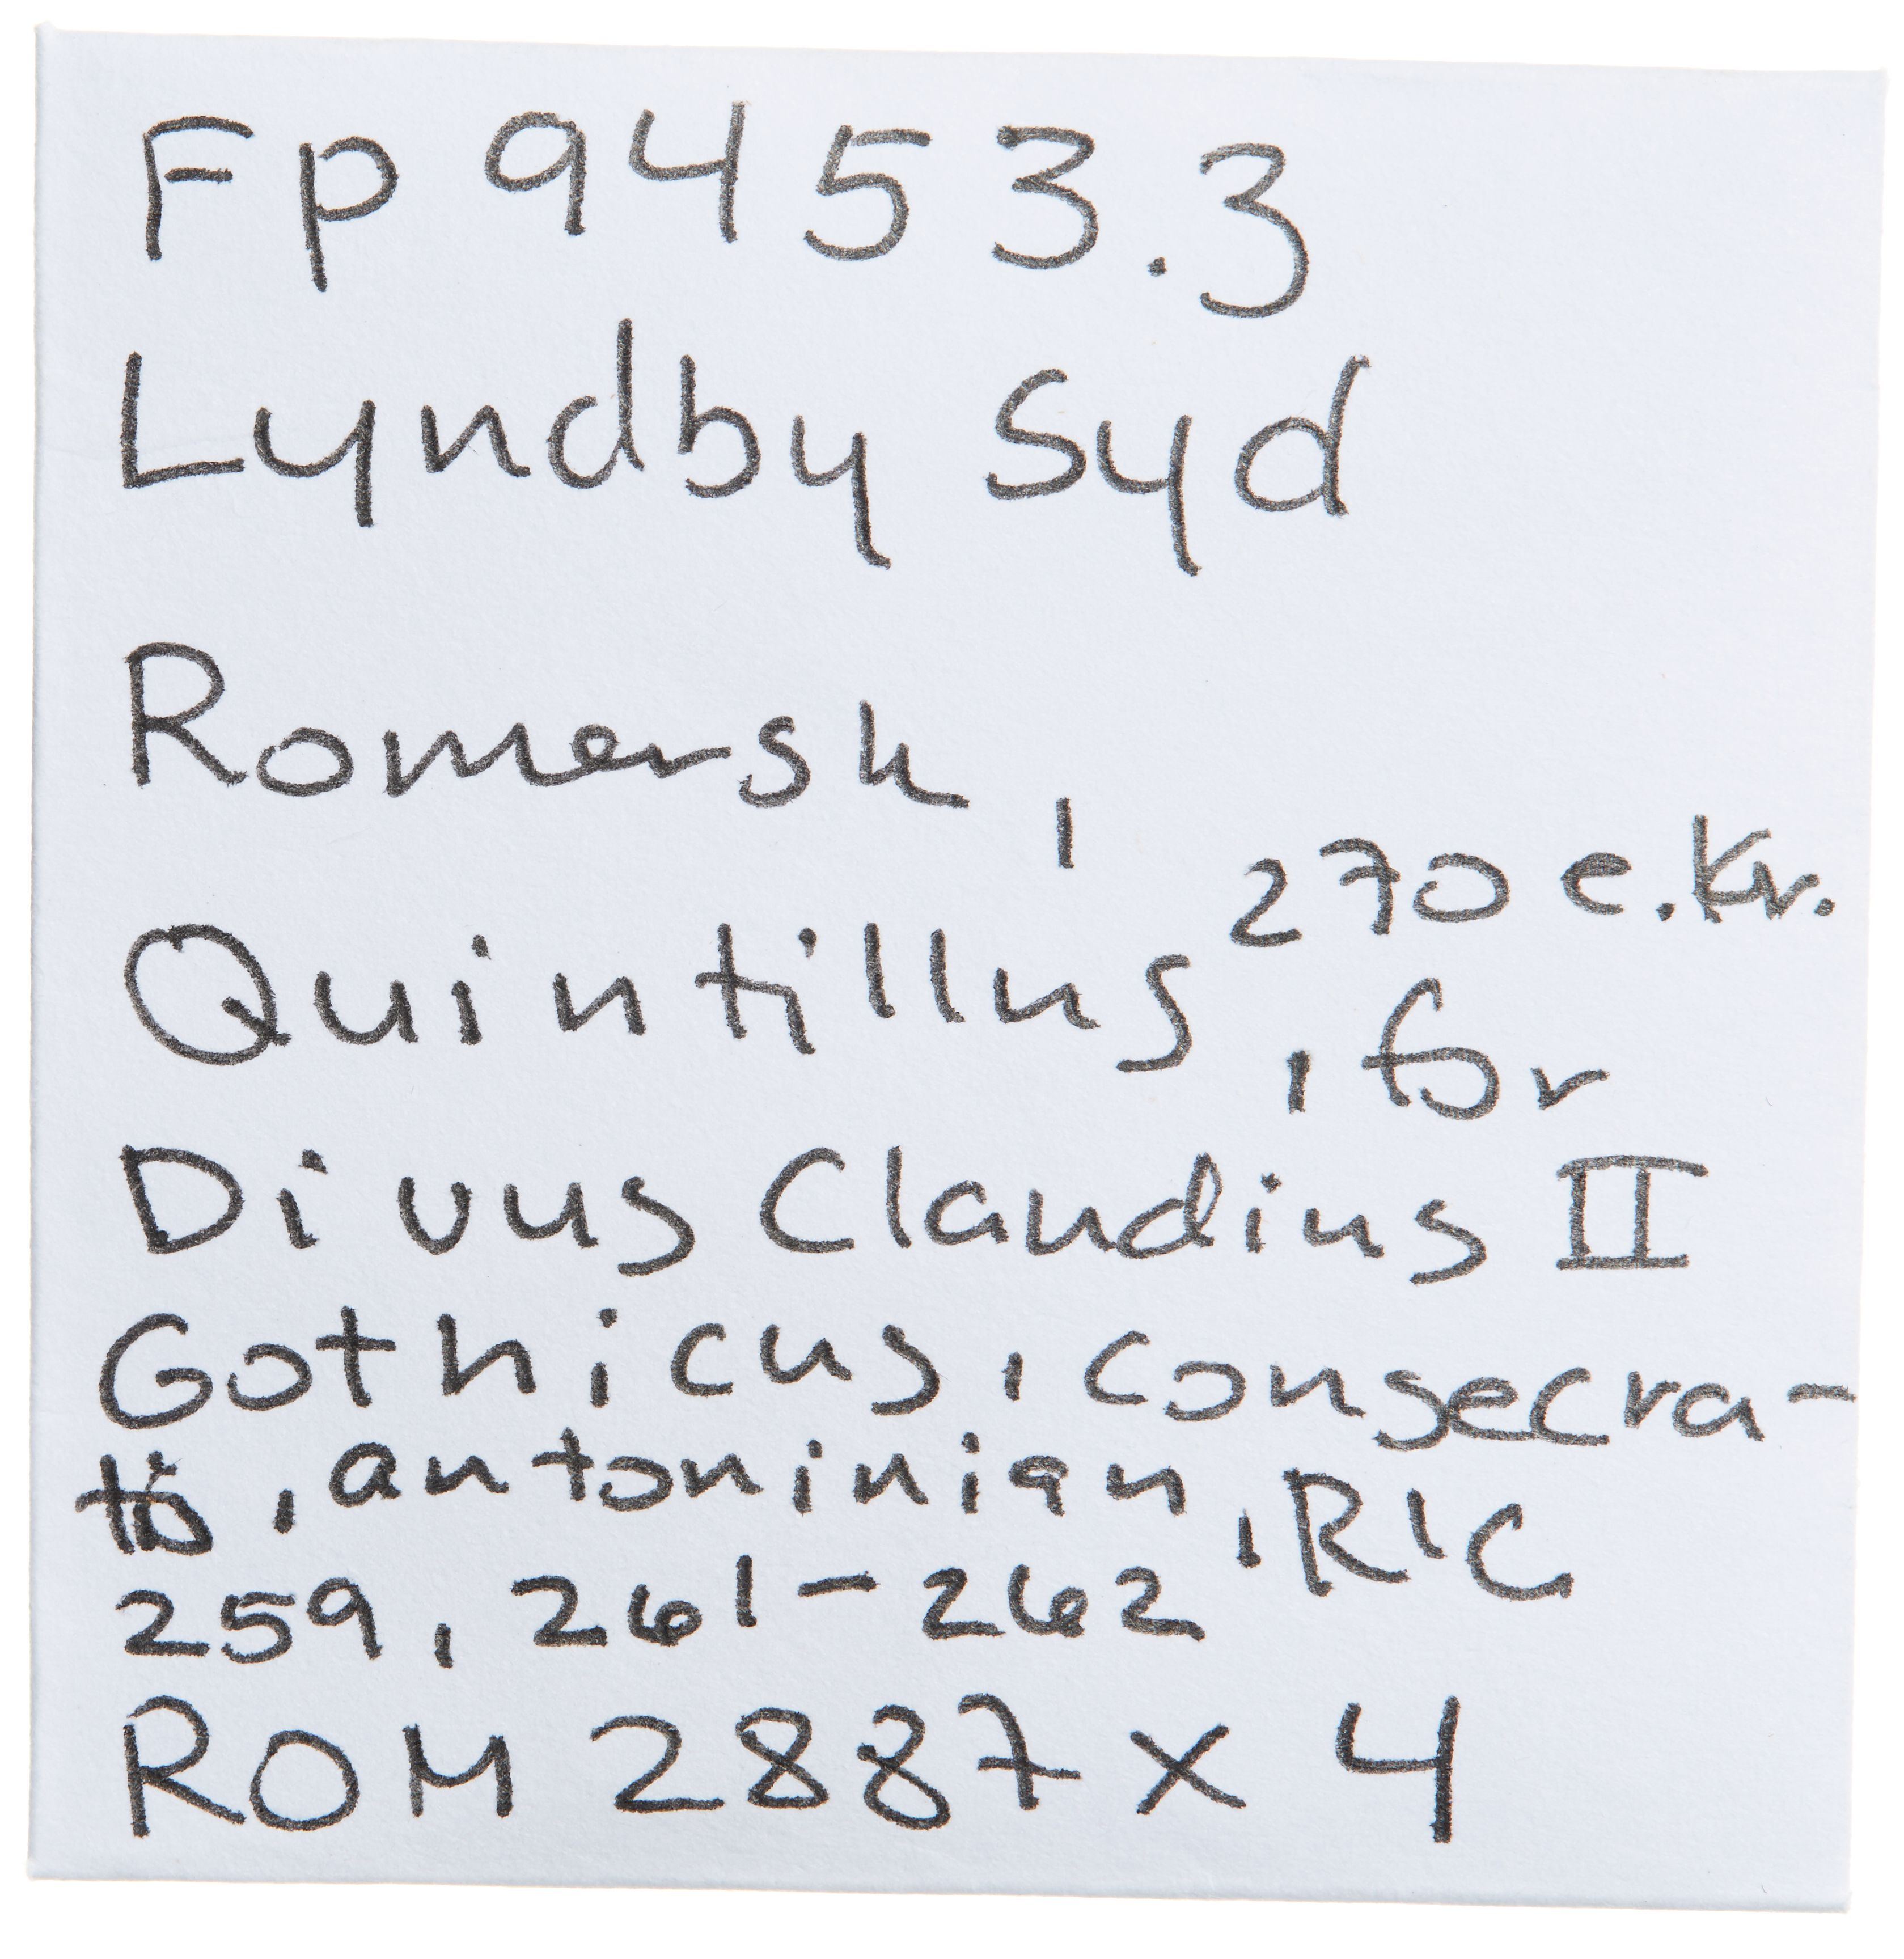 Fp 9453.3
Lyndby Syd
Romersk,
Quintillus, 270 e.Kr., for
Divus Claudius II
Gothicus, consecra-
tio, antoninian, RIC
259, 261-262
ROM 2887 x 4